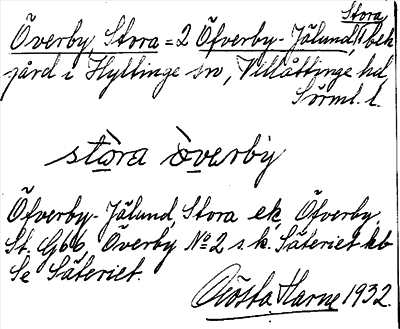 Stora
Överby, Stora = 2 Öfverby-Jälund, 1 bek
gård i Hyltinge sn, Villåttinge hd,
Sörml. l.
stòra òverby
Öfverby-Jälund, Stora ek, Öfverby,
St. Gbb. Överby No 2 s.k. Säteriet kb
Se Säteriet.
Gösta Harne 1932.